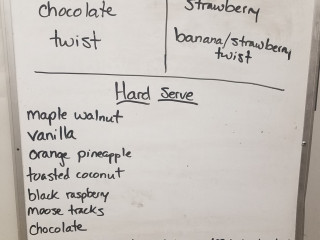 chocolate
twist
strawberry
banana/strawberry
twist
Hard Serve
maple walnut
vanilla
orange pineapple
toasted coconut
black raspberry
moose tracks
chocolate